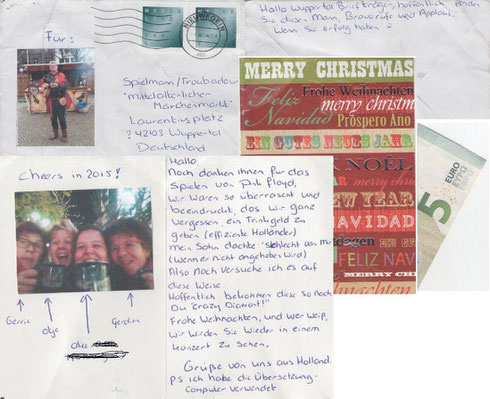 Für:
NIEUWEGEIN
Hallo Wuppertal Briefträger, hoffentlich finden
Sie diesen Mann, Bravorufe und Applaus,
Wenn Sie erfolg haben
Spielmann/Troubadour
"mittelalterlicher
Märchenmarkt"
Laurentiusplatz
? 42103 Wuppertal
Deutschland
MERRY CHRISTMAS
Feliz Navidad
Frohe Weihnachten
merry christmas
Próspero Año
EIN GUTES NEUES JAHR
NOËL
MERRY CHRISTMAS
NEW YEAR
NAVIDAD
FELIZ NAVIDAD
MERRY CHRISTMAS
5
EURO
Cheers in 2015!
Gerrie
otje
Gerdien
Hallo,
Noch danken Ihnen für das
Spielen von Pink Floyd,
Wir waren so überrascht und
beeindruckt, das wir ganz
vergessen ein Trinkgeld zu
geben (effiziente Holländer)
mein Sohn dachte schlecht von mir
(Wenn er nicht angehoben wird)
Also noch Versuche ich es auf
diese Weise.
Hoffentlich bekommen diese so noch
Du "crazy Diamant"!
Frohe Weihnachten, und Wer Weiß,
Wir Wirden Sie Wieder in einem
Konzert zu Sehen.
Grüße von uns aus Holland.
p.s ich habe die Übersetzung-
Computer verwendet